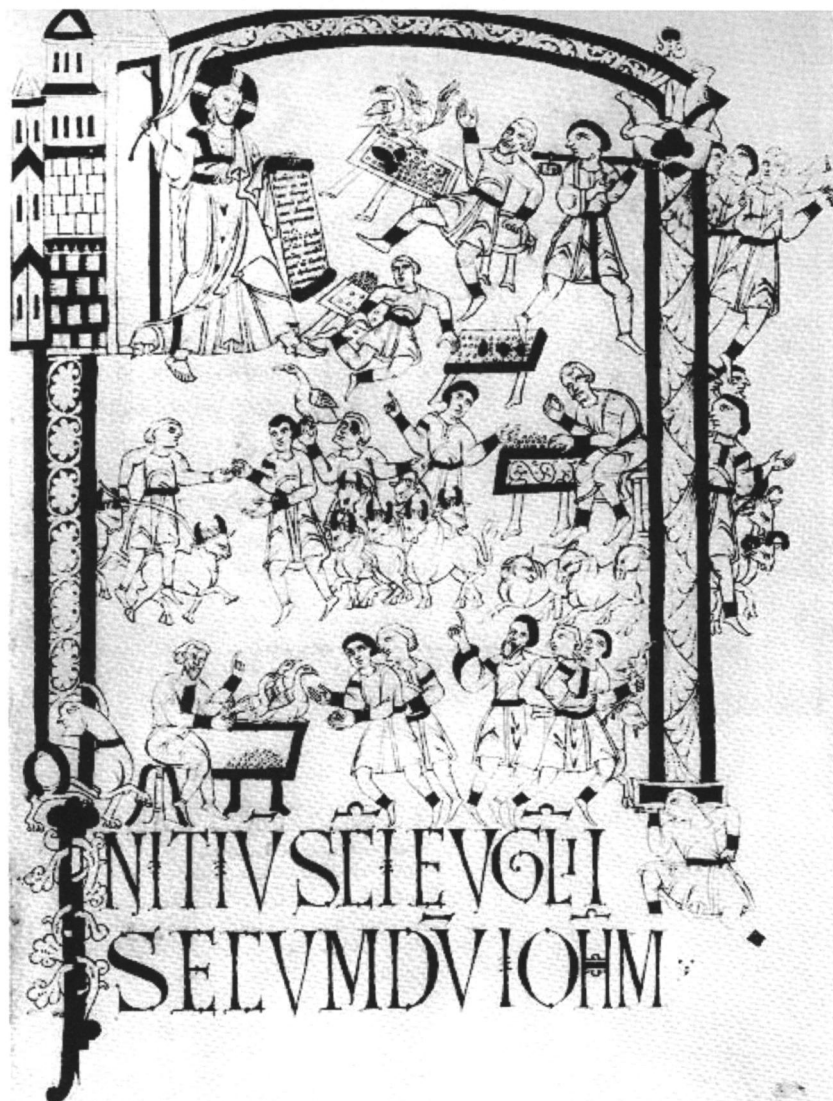 INITIV SC̄I EVGL̄II
SECVMDV̄ IOH̄M